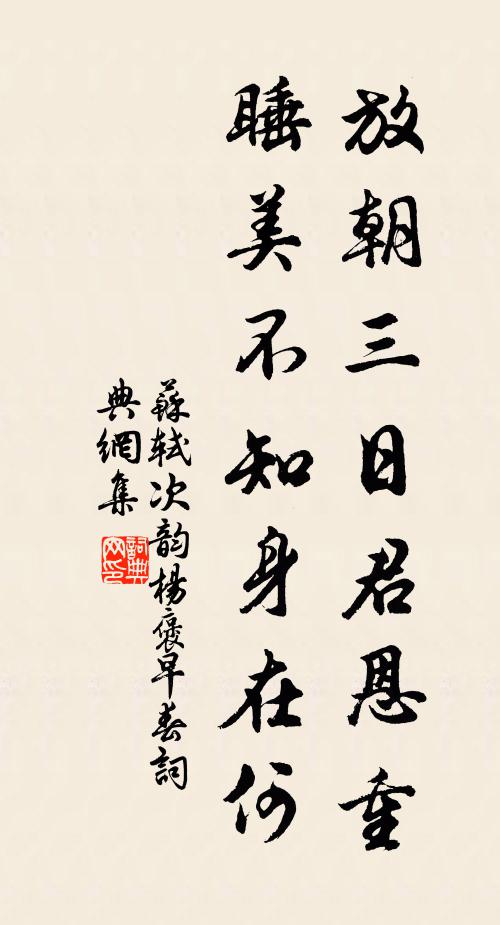 放朝三日君恩重
睡美不知身在何
蘇軾次韵楊褒早春詞
典網集
詞典网印